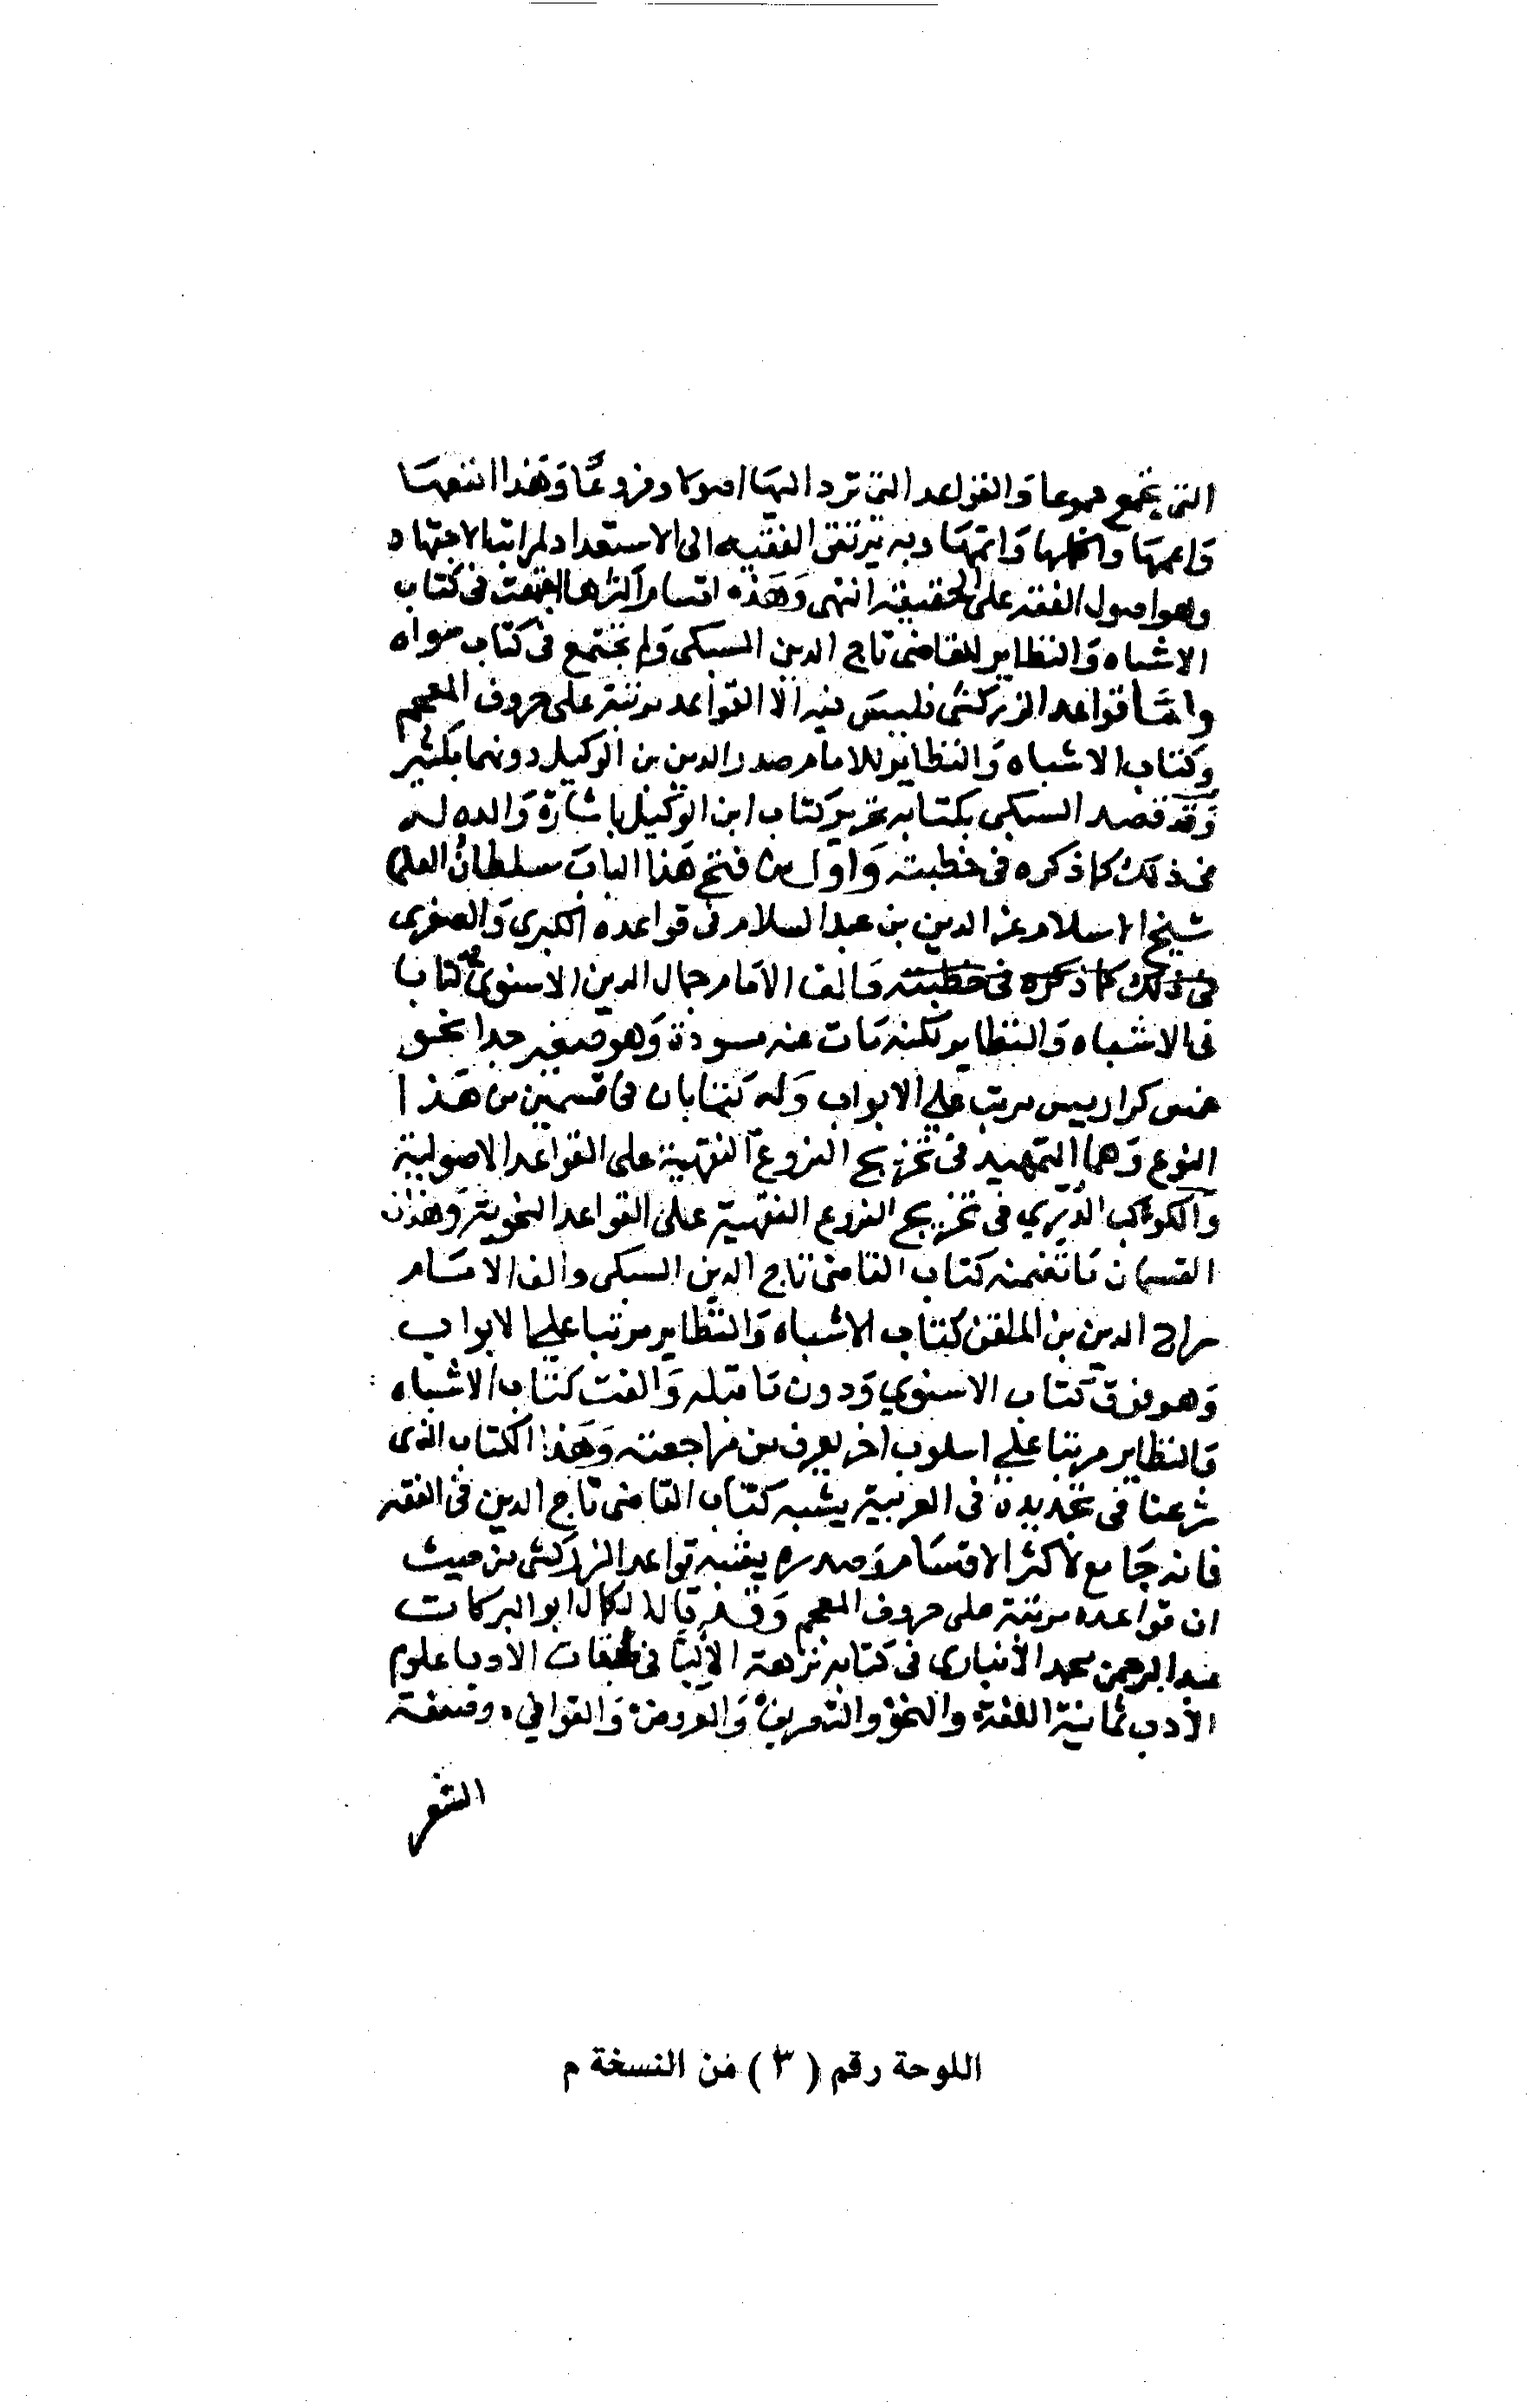 التي تجمع جموعا وَالقواعد التي ترد اليهَا اصولا وفروعًا وَهَذا انفعهَا
وَاعمهَا واكملها وَاتمهَا وبه يَرتقي الفقيه الى الاستعداد لمراتب الاجتهاد
وهو اصول الفقه على الحقيقة انتهى وَهَذه اقسام اكثرها اجتمعت فى كتاب
الاشباه وَالنظاير للقاضى تاج الدين السبكى وَلم تجتمع فى كتاب سواه
وامَّا قواعد الزركشى فليسَ فيه الّا القواعد مرتبة على حروف المعجم
وكتاب الاشباه وَالنظاير للامام صدر الدين بن الوكيل دونهما بكثير
وَقد قصد السبكى بكتابه تحرير كتاب ابن الوكيل باشارة وَالده له
فى ذلك كما ذكره فى خطبته وَاول من فتح هَذا الباب سلطان العلما
شيخ الاسلام عز الدين بن عبد السلام فى قواعده الكبرى وَالصغرى
فى ذلك كما ذكره فى خطبته وَالف الامَام جمال الدين الاسنوى كتابا
فى الاشباه وَالنظاير لكنه مَات عنه مسودة وَهو صغير جدا نحو
خمس كراريس مرتب على الابواب وَله كتابان فى قسمين من هَذا
النوع وَهما التمهيد فى تخريج الفروع الفقهية على القواعد الاصولية
والكوكب الدري فى تخريج الفروع الفقهية على القواعد النحوية وَهذان
القسمان مَا تضمنه كتاب القاضى تاج الدين السبكى والف الامَام
سراج الدين بن الملقن كتاب الاشباه وَالنظاير مرتبا على الابواب
وَهو فوق كتاب الاسنوي وَدون مَا قبله وَالفت كتاب الاشباه
وَالنظاير مرتبا على اسلوب اخر يعرف من مراجعته وَهَذا الكتاب الذى
شرعنا فى تجديده فى العربية يشبه كتاب القاضى تاج الدين فى الفقه
فانه جَامع لاكثر الاقسَام وَصدره يشبه قواعد الزركشى من حيث
ان قواعده مرتبة على حروف المعجم وَقد قال الكمال ابو البركات
عبد الرحمن محمد الأنبارى فى كتابه نزهة الألبّا فى طبقات الادبا علوم
الأدب ثمانية اللغة والنحو والتصريف وَالعروض وَالقوافي وصنعة
الشعر
اللوحة رقم (٣) من النسخة م